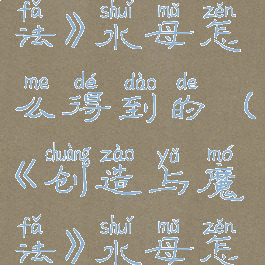 fǎ shuǐ mǔ zěn
法》水母怎
me dé dào de
么得到的（
chuàng zào yǔ mó
《创造与魔
fǎ shuǐ mǔ zěn
法》水母怎